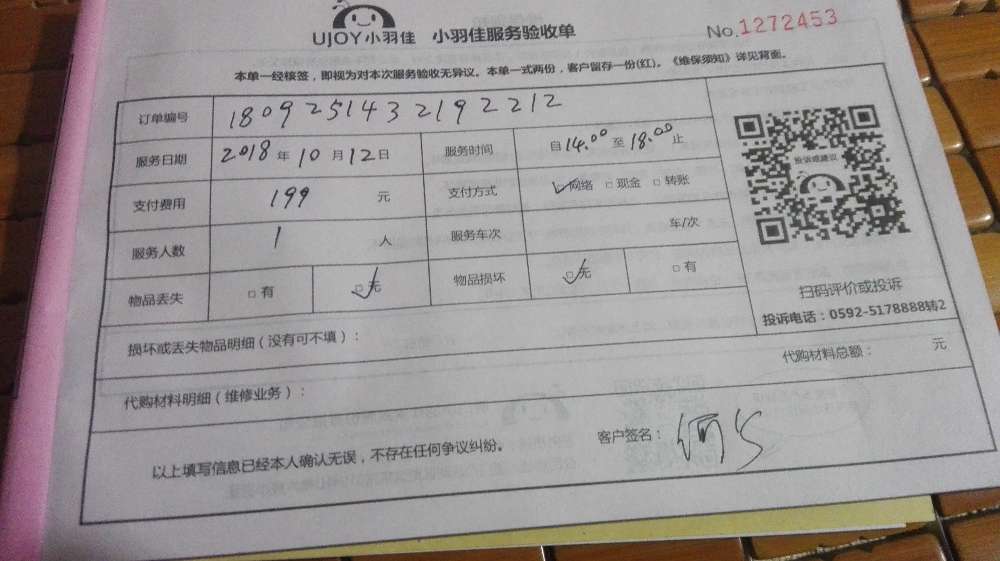 UJOY小羽佳 小羽佳服务验收单 No.1272453
本单一经核签，即视为对本次服务验收无异议。本单一式两份，客户留存一份(红)。《维保须知》详见背面。
订单编号 1809251432192212
服务日期 2018年10月12日 服务时间 自14.00至18.00止
支付费用 199 元 支付方式 ☑网络 □现金 □转账
服务人数 1 人 服务车次 车/次
物品丢失 □有 ☑无 物品损坏 ☑无 □有
投诉或建议
扫码评价或投诉
投诉电话：0592-5178888转2
损坏或丢失物品明细（没有可不填）：
代购材料明细（维修业务）： 代购材料总额： 元
以上填写信息已经本人确认无误，不存在任何争议纠纷。 客户签名：